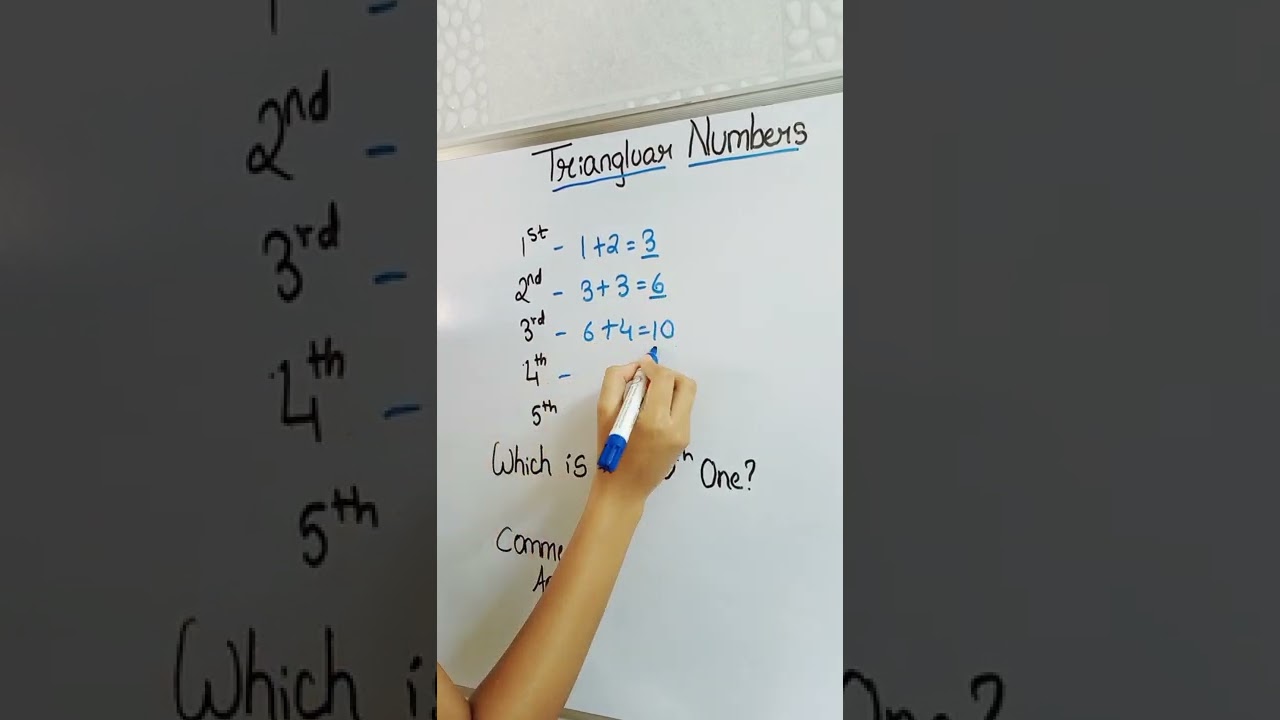 Triangluar Numbers
1st - 1+2=3
2nd - 3+3=6
3rd - 6+4=10
4th -
5th
Which is One?